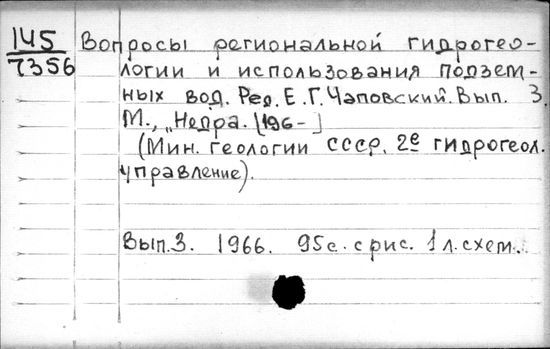 145 Вопросы региональной гидрогео-
7356 логии и использования подзем-
ных вод. Ред. Е. Г. Чаповский. Вып. 3.
М., „Недра. [196-]
(Мин. геологии СССР. 2е гидрогеол.
управление).
Вып.3. 1966. 95с. с рис. 1 л. схем.